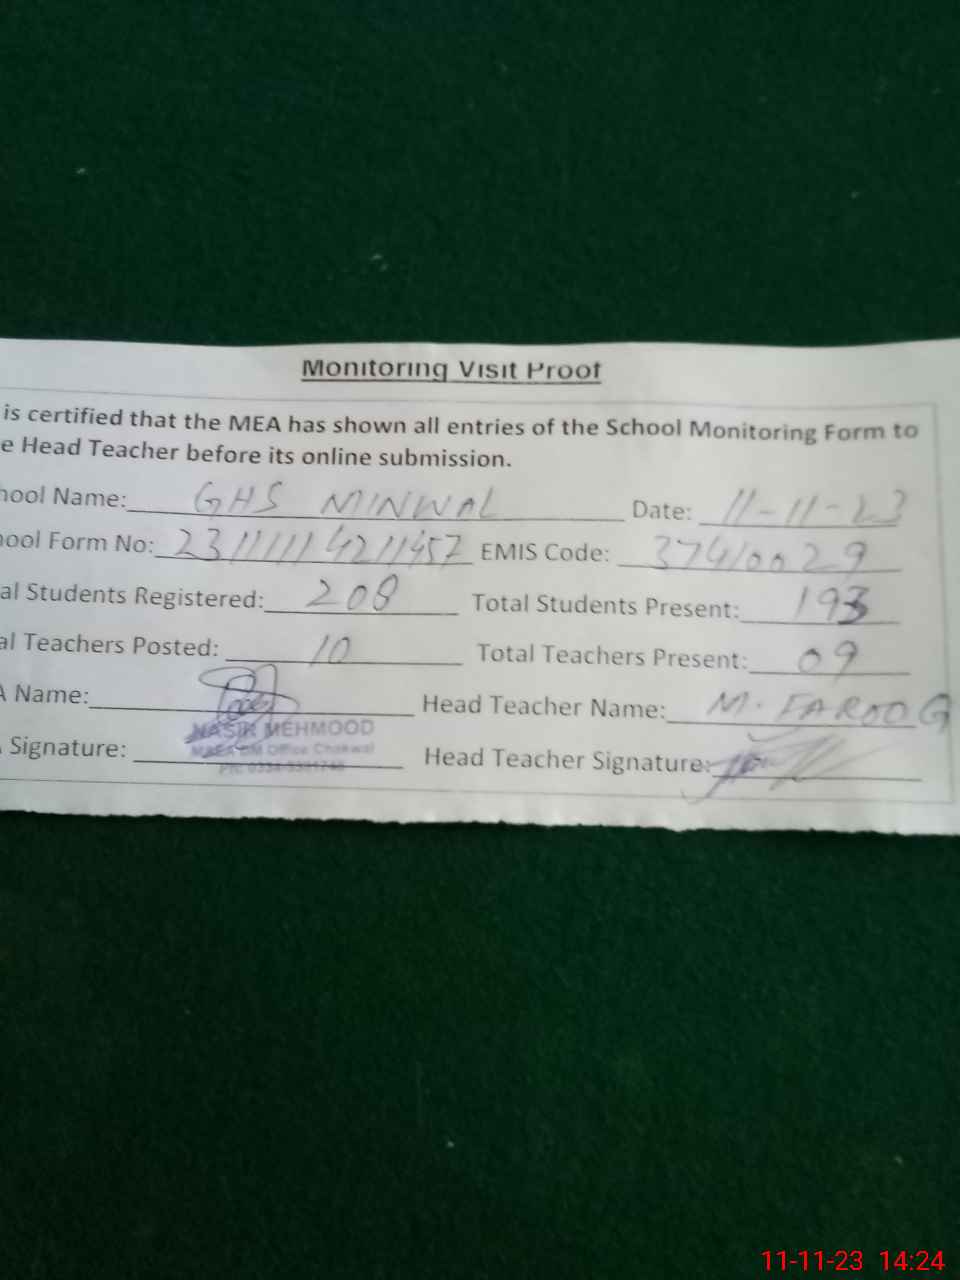 Monitoring Visit Proof
is certified that the MEA has shown all entries of the School Monitoring Form to
e Head Teacher before its online submission.
hool Name: GHS MINWAL Date: 11-11-23
hool Form No: 23111114211457 EMIS Code: 37410029
al Students Registered: 208 Total Students Present: 193
al Teachers Posted: 10 Total Teachers Present: 09
A Name: Head Teacher Name: M. FAROOQ
NASIR MEHMOOD
Office Chakwal
Signature: Head Teacher Signature:
11-11-23 14:24